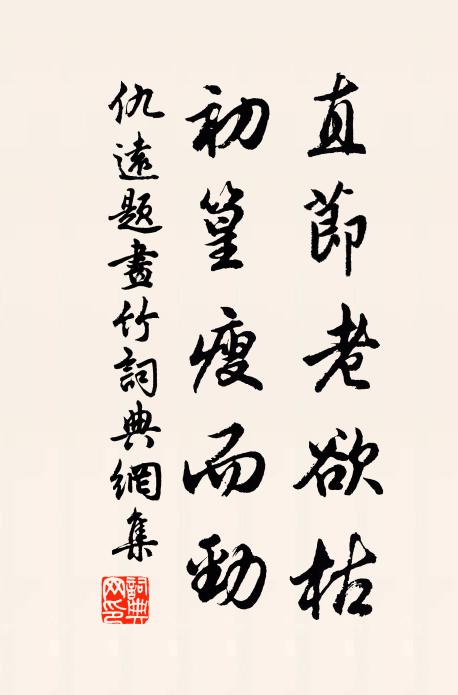 直節老欲枯
初篁瘦而勁
仇遠題畫竹詞典網集
詞典網印